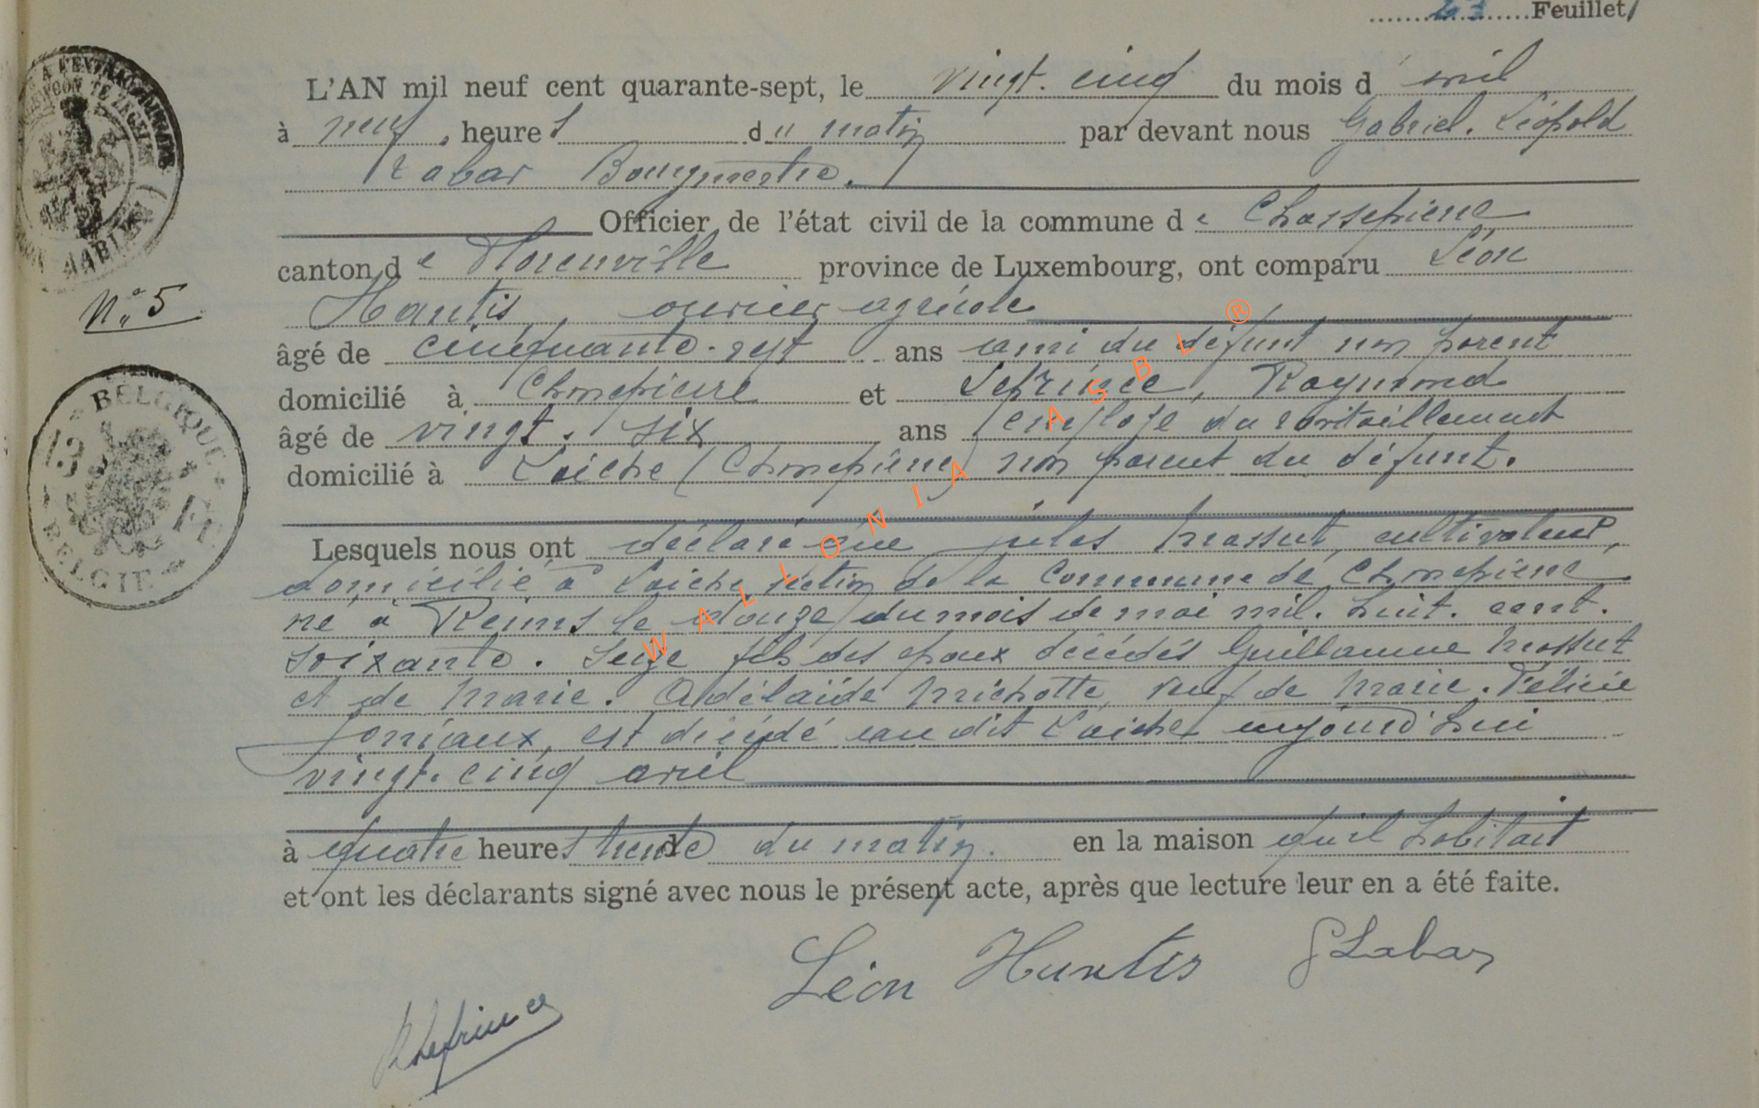 23 Feuillet
L'AN mil neuf cent quarante-sept, le vingt-cinq du mois d' avril
à neuf heures du matin par devant nous Gabriel. Léopold
Labar Bourgmestre.
Officier de l'état civil de la commune de Chassepierre
canton de Florenville province de Luxembourg, ont comparu Léon
Hantis, ouvrier agricole
âgé de cinquante-sept ans ami du défunt non parent
domicilié à Chassepierre et Lefrince, Raymond
âgé de vingt. six ans employé du ravitaillement
domicilié à Laiche (Chassepierre) non parent du défunt.
N° 5
BELGIQUE
5 Fr
BELGIE
Lesquels nous ont déclaré que Jules Massut, cultivateur,
domicilié à Laiche section de la Commune de Chassepierre
né à Reims le douze du mois de mai mil. huit. cent.
soixante. seize fils des époux décédés Guillaume Massut
et de Marie. Adélaïde Michotte, veuf de Marie. Félicie
Joniaux, est décédé au dit Laiche aujourd'hui
vingt. cinq avril
à quatre heures trente du matin. en la maison qu'il habitait
et ont les déclarants signé avec nous le présent acte, après que lecture leur en a été faite.
Léon Huntis GLabar
RLefrince
WALLONIA ASBL ®